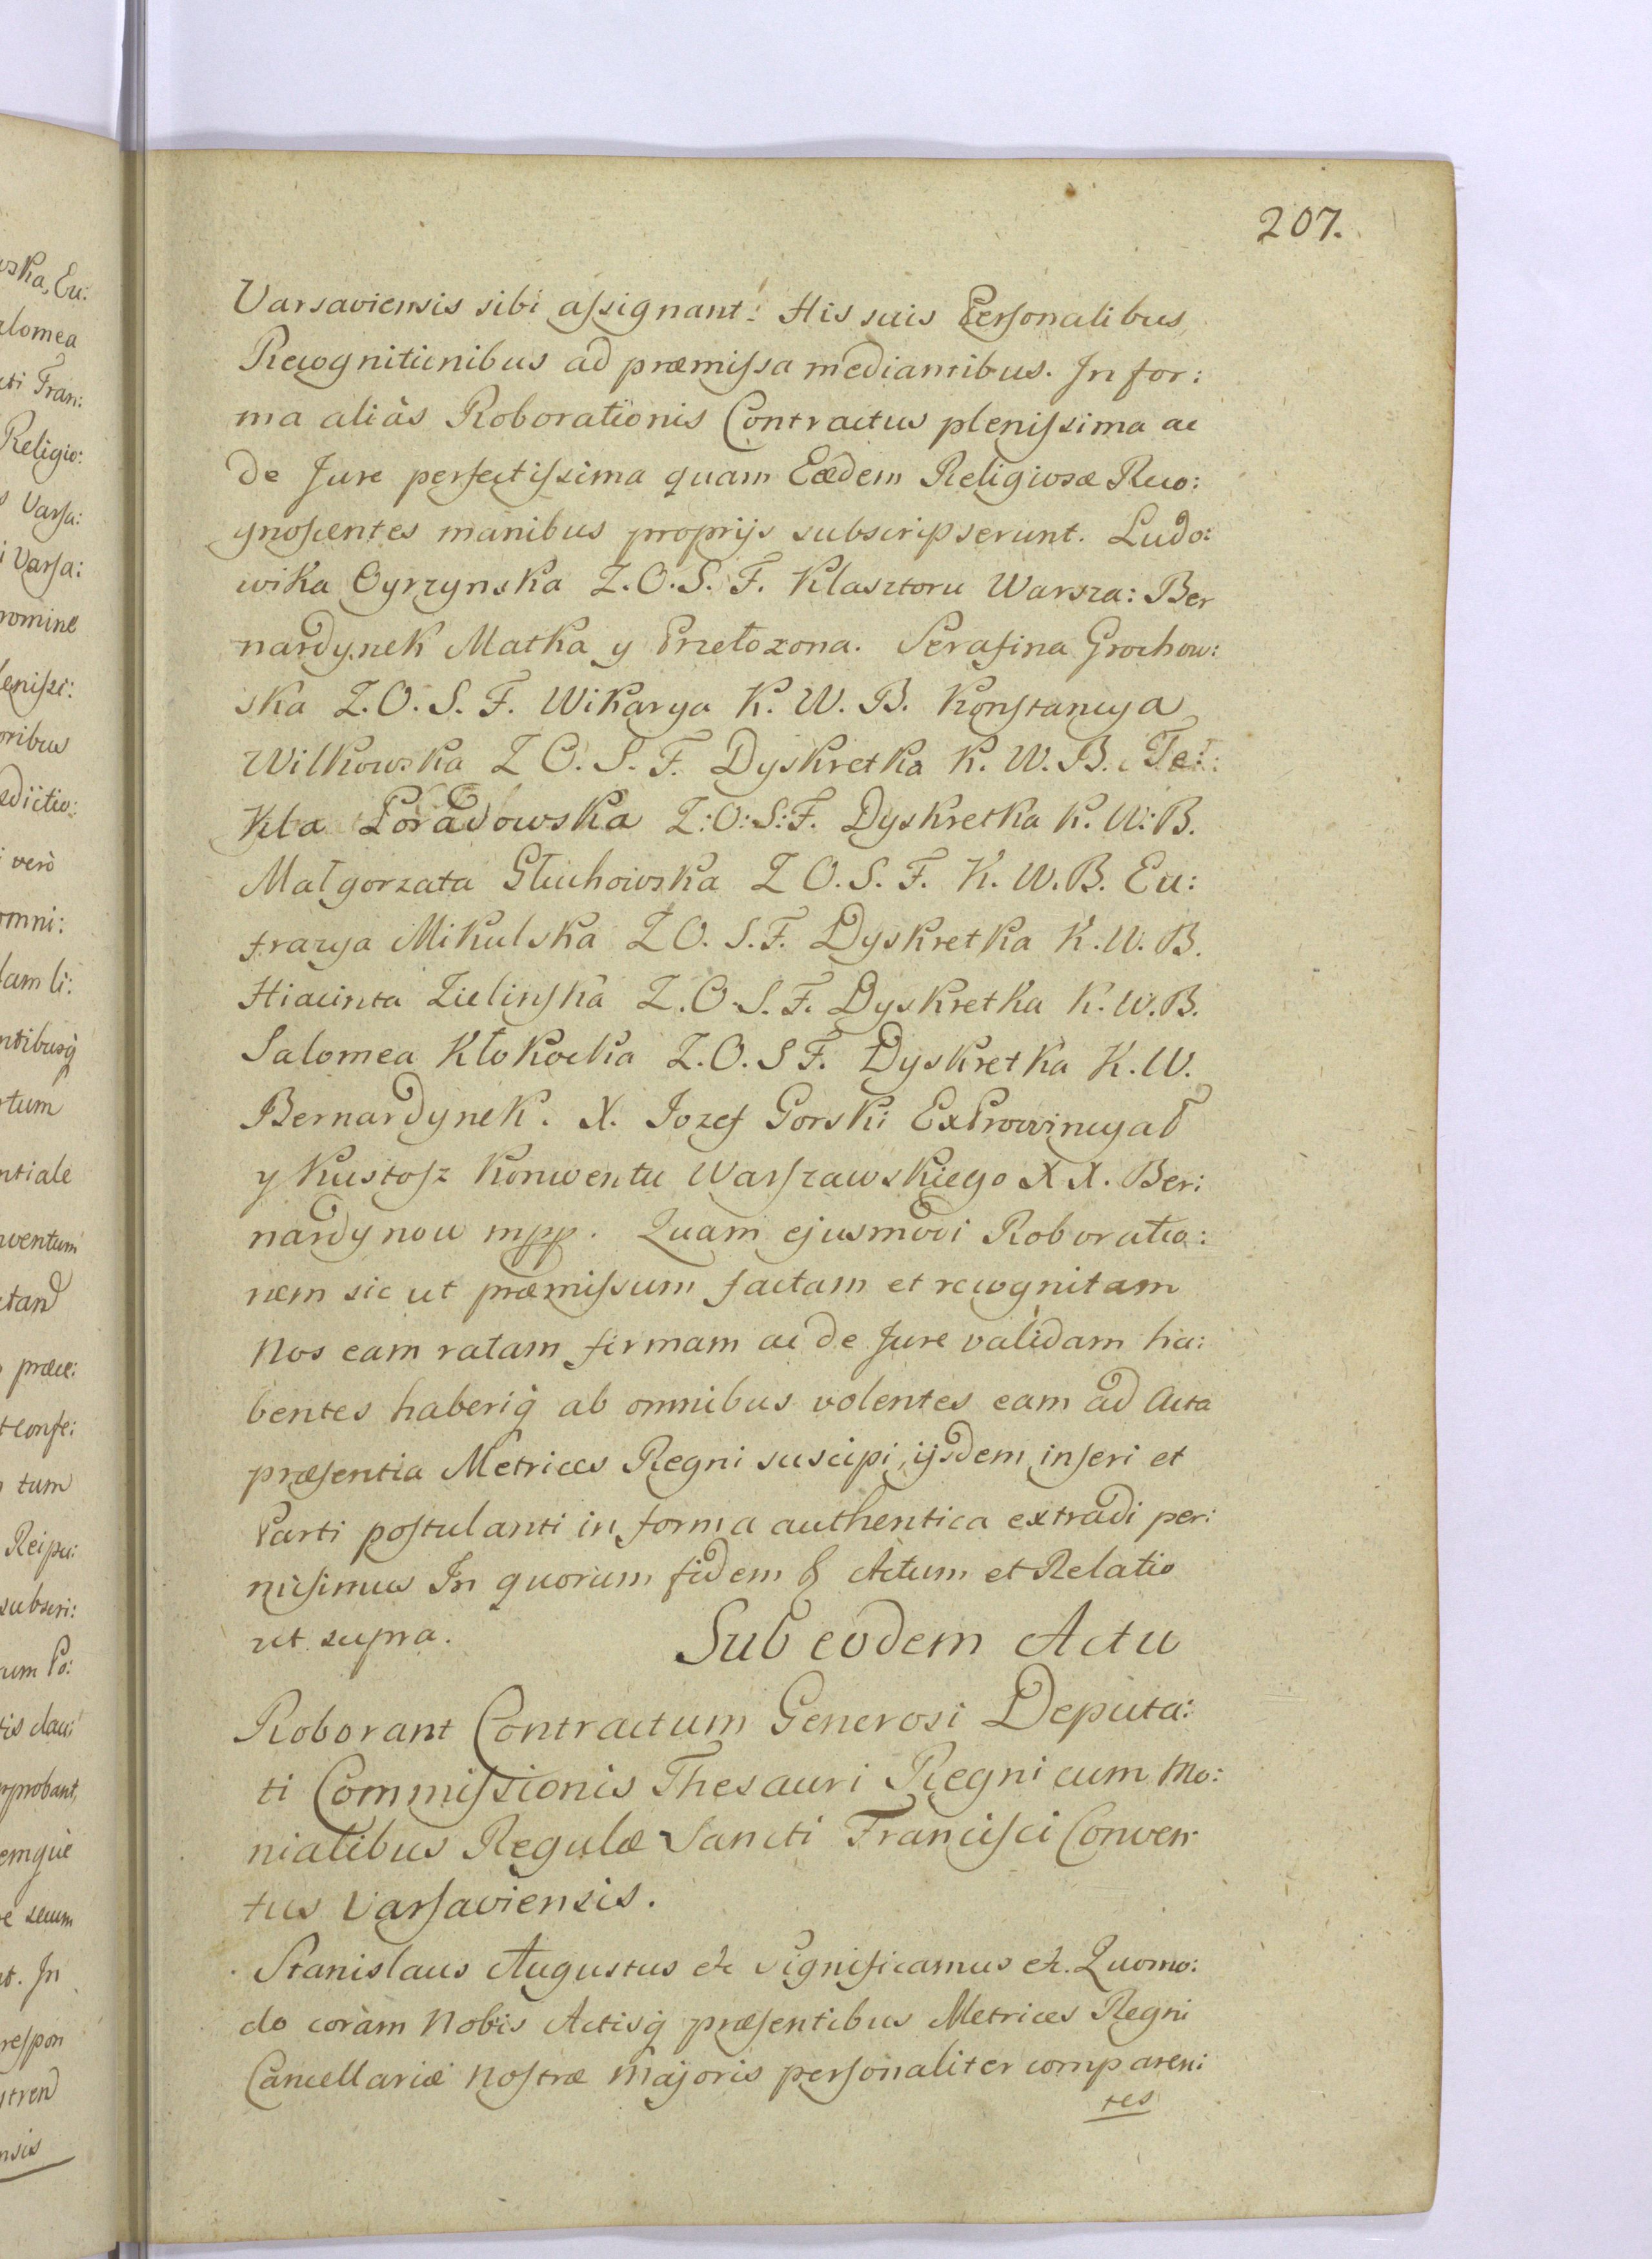 207.
Varsaviensis sibi aſsignant: His suis Perſonalibus
Recognitionibus ad præmiſsa mediantibus. In for:
ma aliàs Roborationis Contractus pleniſsima ac
de Jure perfectiſsima quam Eædem Religiosæ Reco:
gnoſcentes manibus proprijs subscripserunt. Ludo:
wika Cyrzynska Z.O.S.F. Klasztoru Warsza: Ber
nardynek Matka y Przełozona. Serafina Grochow:
ska Z.O.S.F. Wikarya K. W. B. Konſtancya
Wilkowska Z O. S. F. Dyskretka K. W. B. Te:
kla Poradowska Z:O:S:F. Dyskretka K. W: B.
Małgorzata Głuchowska Z O. S. F. K. W. B. Eu:
frazya Mikulska Z O. S. F. Dyskretka K. W. B.
Hiacinta Zielinſka Z. O. S. F. Dyskretka K. W. B.
Salomea Kłokocka Z. O. S F. Dyskretka K. W.
Bernardynek. X. Jozef Gorski ExProwincyał
y Kustoſz Konwentu Warſzawskiego X X. Ber:
nardynow mpp. Quam ejusmodi Roboratio:
nem sic ut præmiſsum factam et recognitam
Nos eam ratam firmam ac de Jure validam ha:
bentes haberiq̃ ab omnibus volentes eam ad Acta
præſentia Metrices Regni suscipi, ijsdem inſeri et
Parti poſtulanti in forma authentica extradi per:
miſimus In quorum fidem & Actum et Relatio
ut supra. Sub eodem Actu
Roborant Contractum Generosi Deputa:
ti Commiſsionis Thesauri Regni cum Mo:
nialibus Regulæ Sancti Franciſci Conven
tus Varſaviensis.
Stanislaus Augustus etc Significamus etc. Quomo:
do coràm Nobis Actisq̃ præſentibus Metrices Regni
Cancellariæ Noſtræ Majoris perſonaliter comparen:
tes